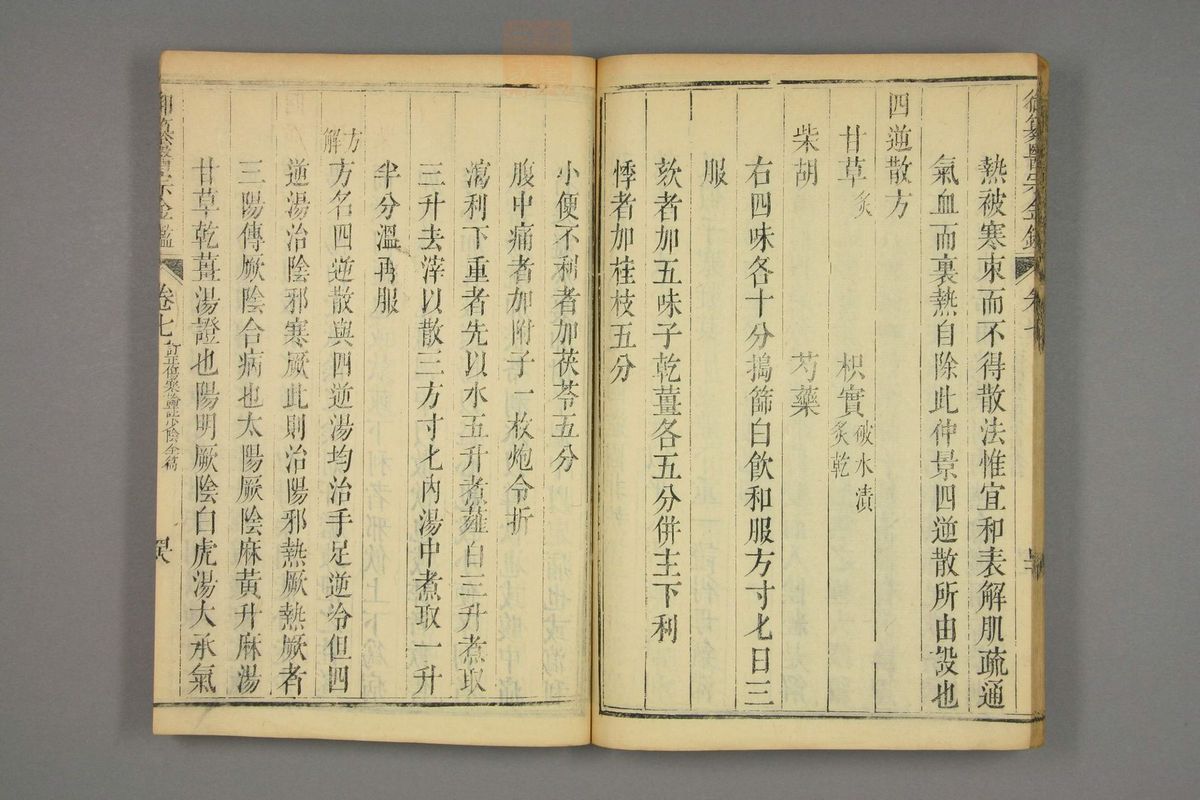 御纂醫宗金鑑
卷七
熱被寒束而不得散法惟宜和表解肌疏通
氣血而裏熱自除此仲景四逆散所由設也
四逆散方
甘草炙 枳實破水漬炙乾
柴胡 芍藥
右四味各十分搗篩白飲和服方寸匕日三
服
欬者加五味子乾薑各五分併主下利
悸者加桂枝五分
小便不利者加茯苓五分
腹中痛者加附子一枚炮令折
瀉利下重者先以水五升煮薤白三升煮取
三升去滓以散三方寸匕內湯中煮取一升
半分溫再服
方解 方名四逆散與四逆湯均治手足逆冷但四
逆湯治陰邪寒厥此則治陽邪熱厥熱厥者
三陽傳厥陰合病也太陽厥陰麻黃升麻湯
甘草乾薑湯證也陽明厥陰白虎湯大承氣
御纂醫宗金鑑
卷七 訂正傷寒論註少陰全篇